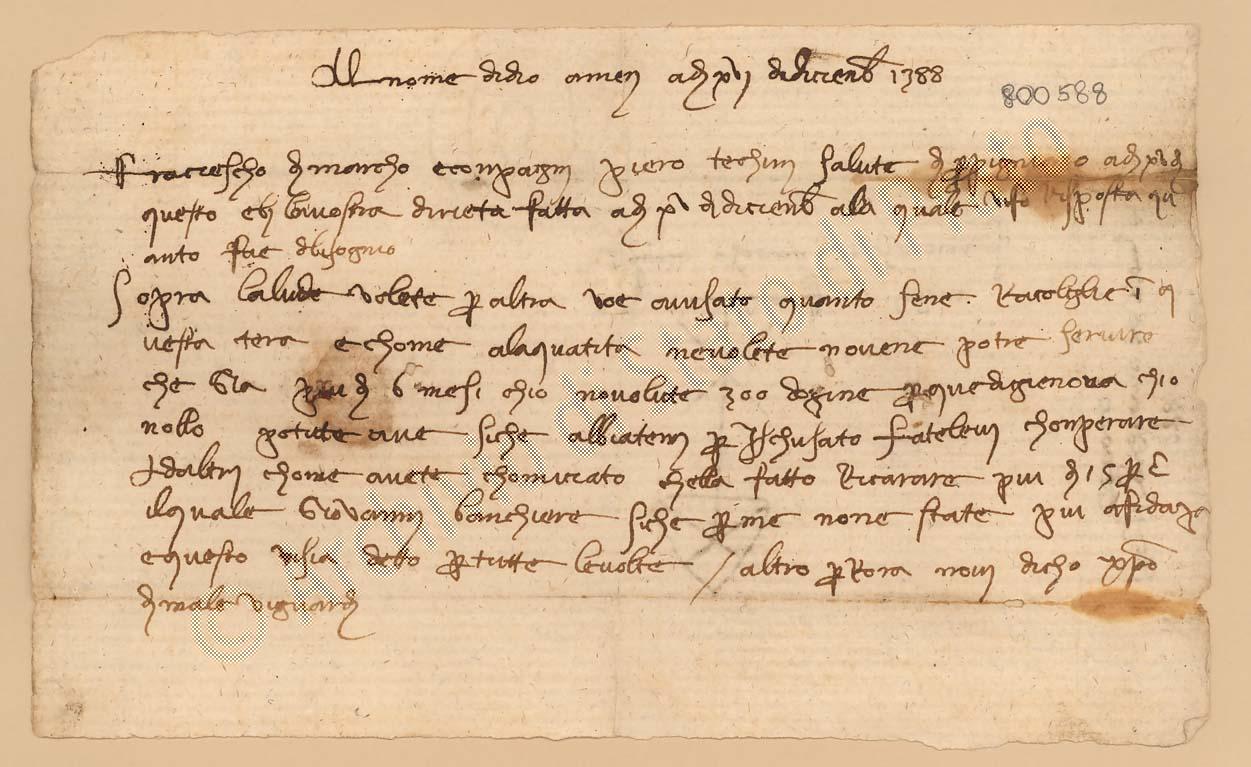 Al nome di dio amen a dì xvi di dicienb 1388
800588
Franciescho di marcho e conpagni piero techini salute di a dì
questo eb la vostra di rieta fatta a dì xv di diciens ala quale vi fo risposta qu
anto fue di bisognio
Sopra la lude volete per altra voe avisato quanto sene Racolglie i q
uesta tera e chome ala quatita ne volete no vene potre servire
che Gia piu di 6 mesi ch io no volute 300 dozine per que di gienova ch io
nollo potute ave siche abiatemi per Ischusato fatelevi chonperare
ad altri chome avete chomiciato fatto Ricarare piu di 15 per c
il quale Giovanni banchiere siche per me none state piu a fidaza
e questo vi sia deto per tutte le volte / altro per Rora novi dicho xpo
di male vi guardi
© Archivio di Stato di Prato